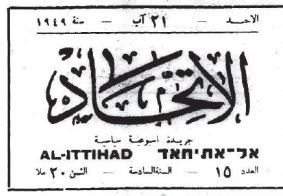 الاحد — ٢١ آب — سنة ١٩٤٩
الاتحاد
جريدة اسبوعية سياسية
AL-ITTIHAD אל־אתיחאד
العدد ١٥ — السنة السادسة — الثمن ٢٠ ملا